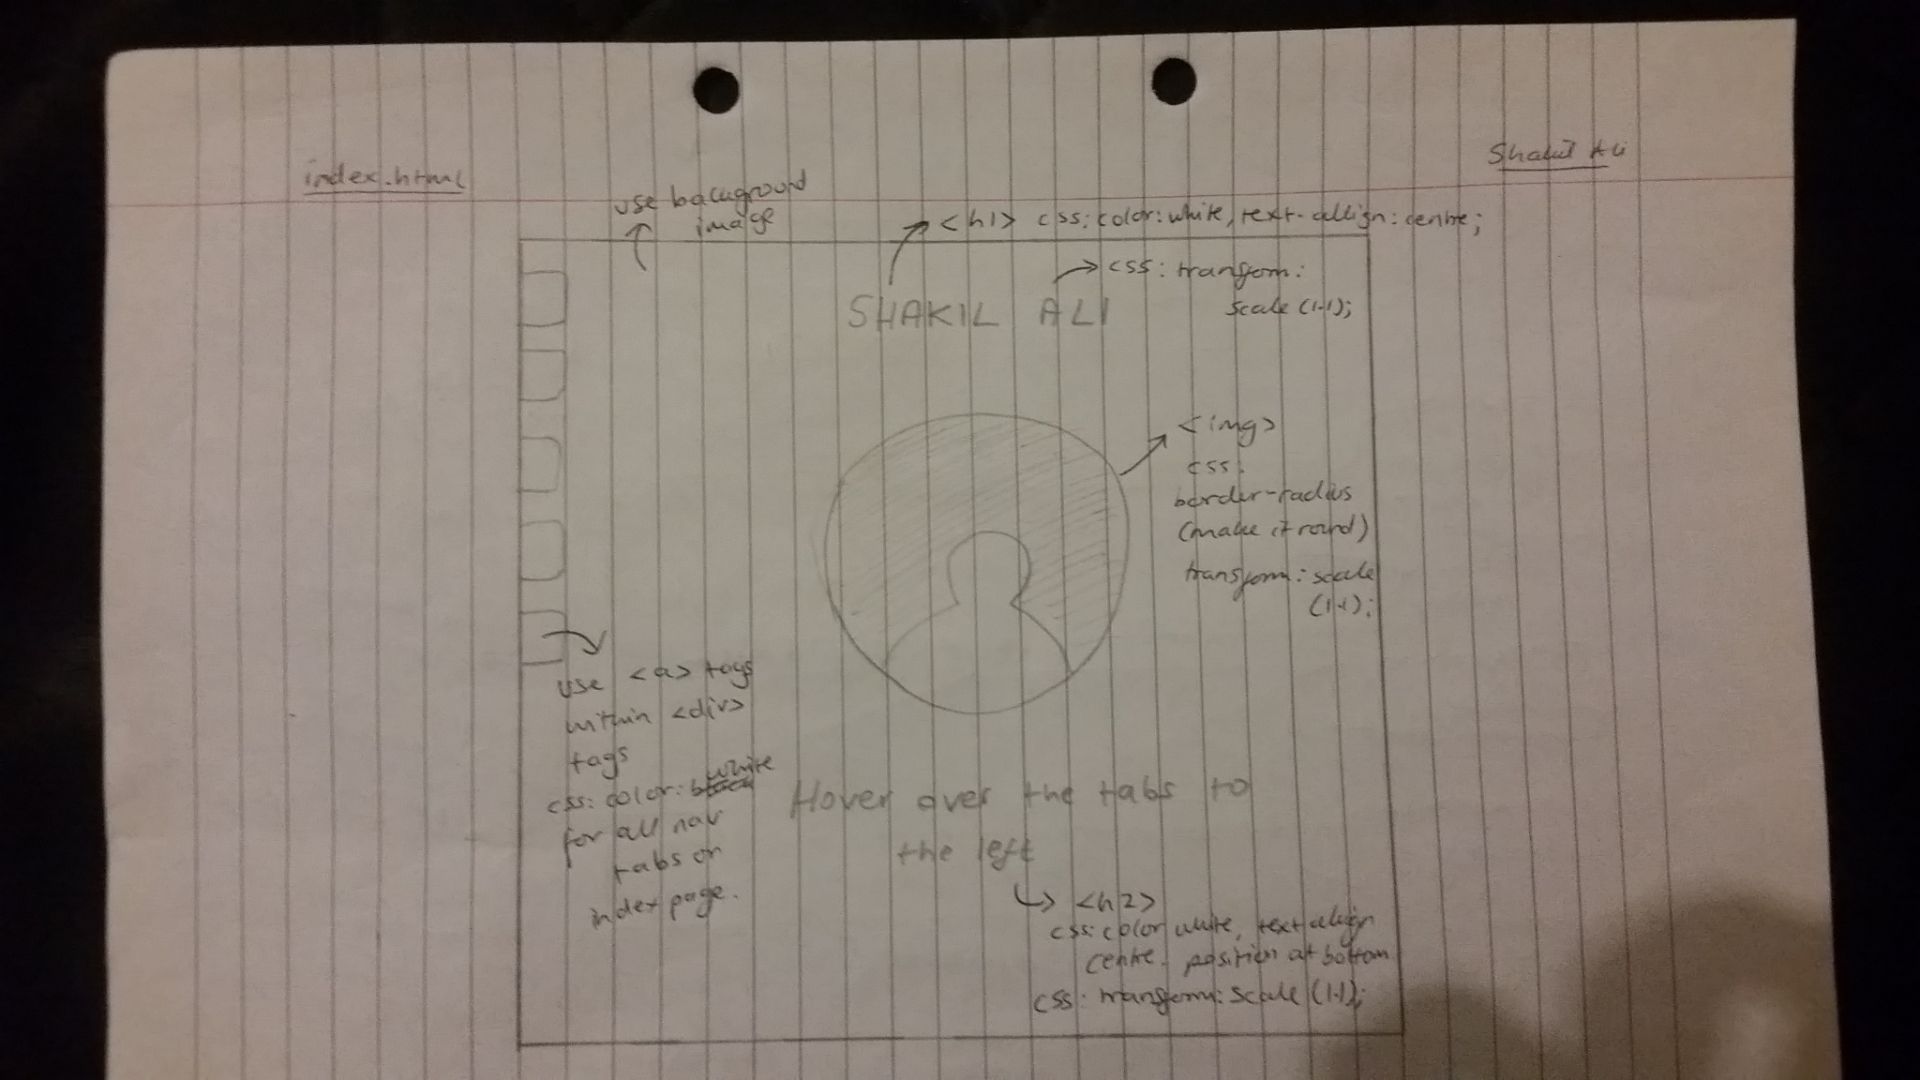 index.html
Shakil Ali
use background
image
<h1> css: color: white, text-allign: centre;
css: transfom:
scale (1.1);
SHAKIL ALI
<img>
css:
border-radius
(make it round)
transfom: scale
(1.1);
use <a> tags
within <div>
tags
css: color: white
for all nav
tabs on
index page.
Hover over the tabs to
the left
<h2>
css: color white, text align
centre. position at bottom
css: transfom: scale (1.1);